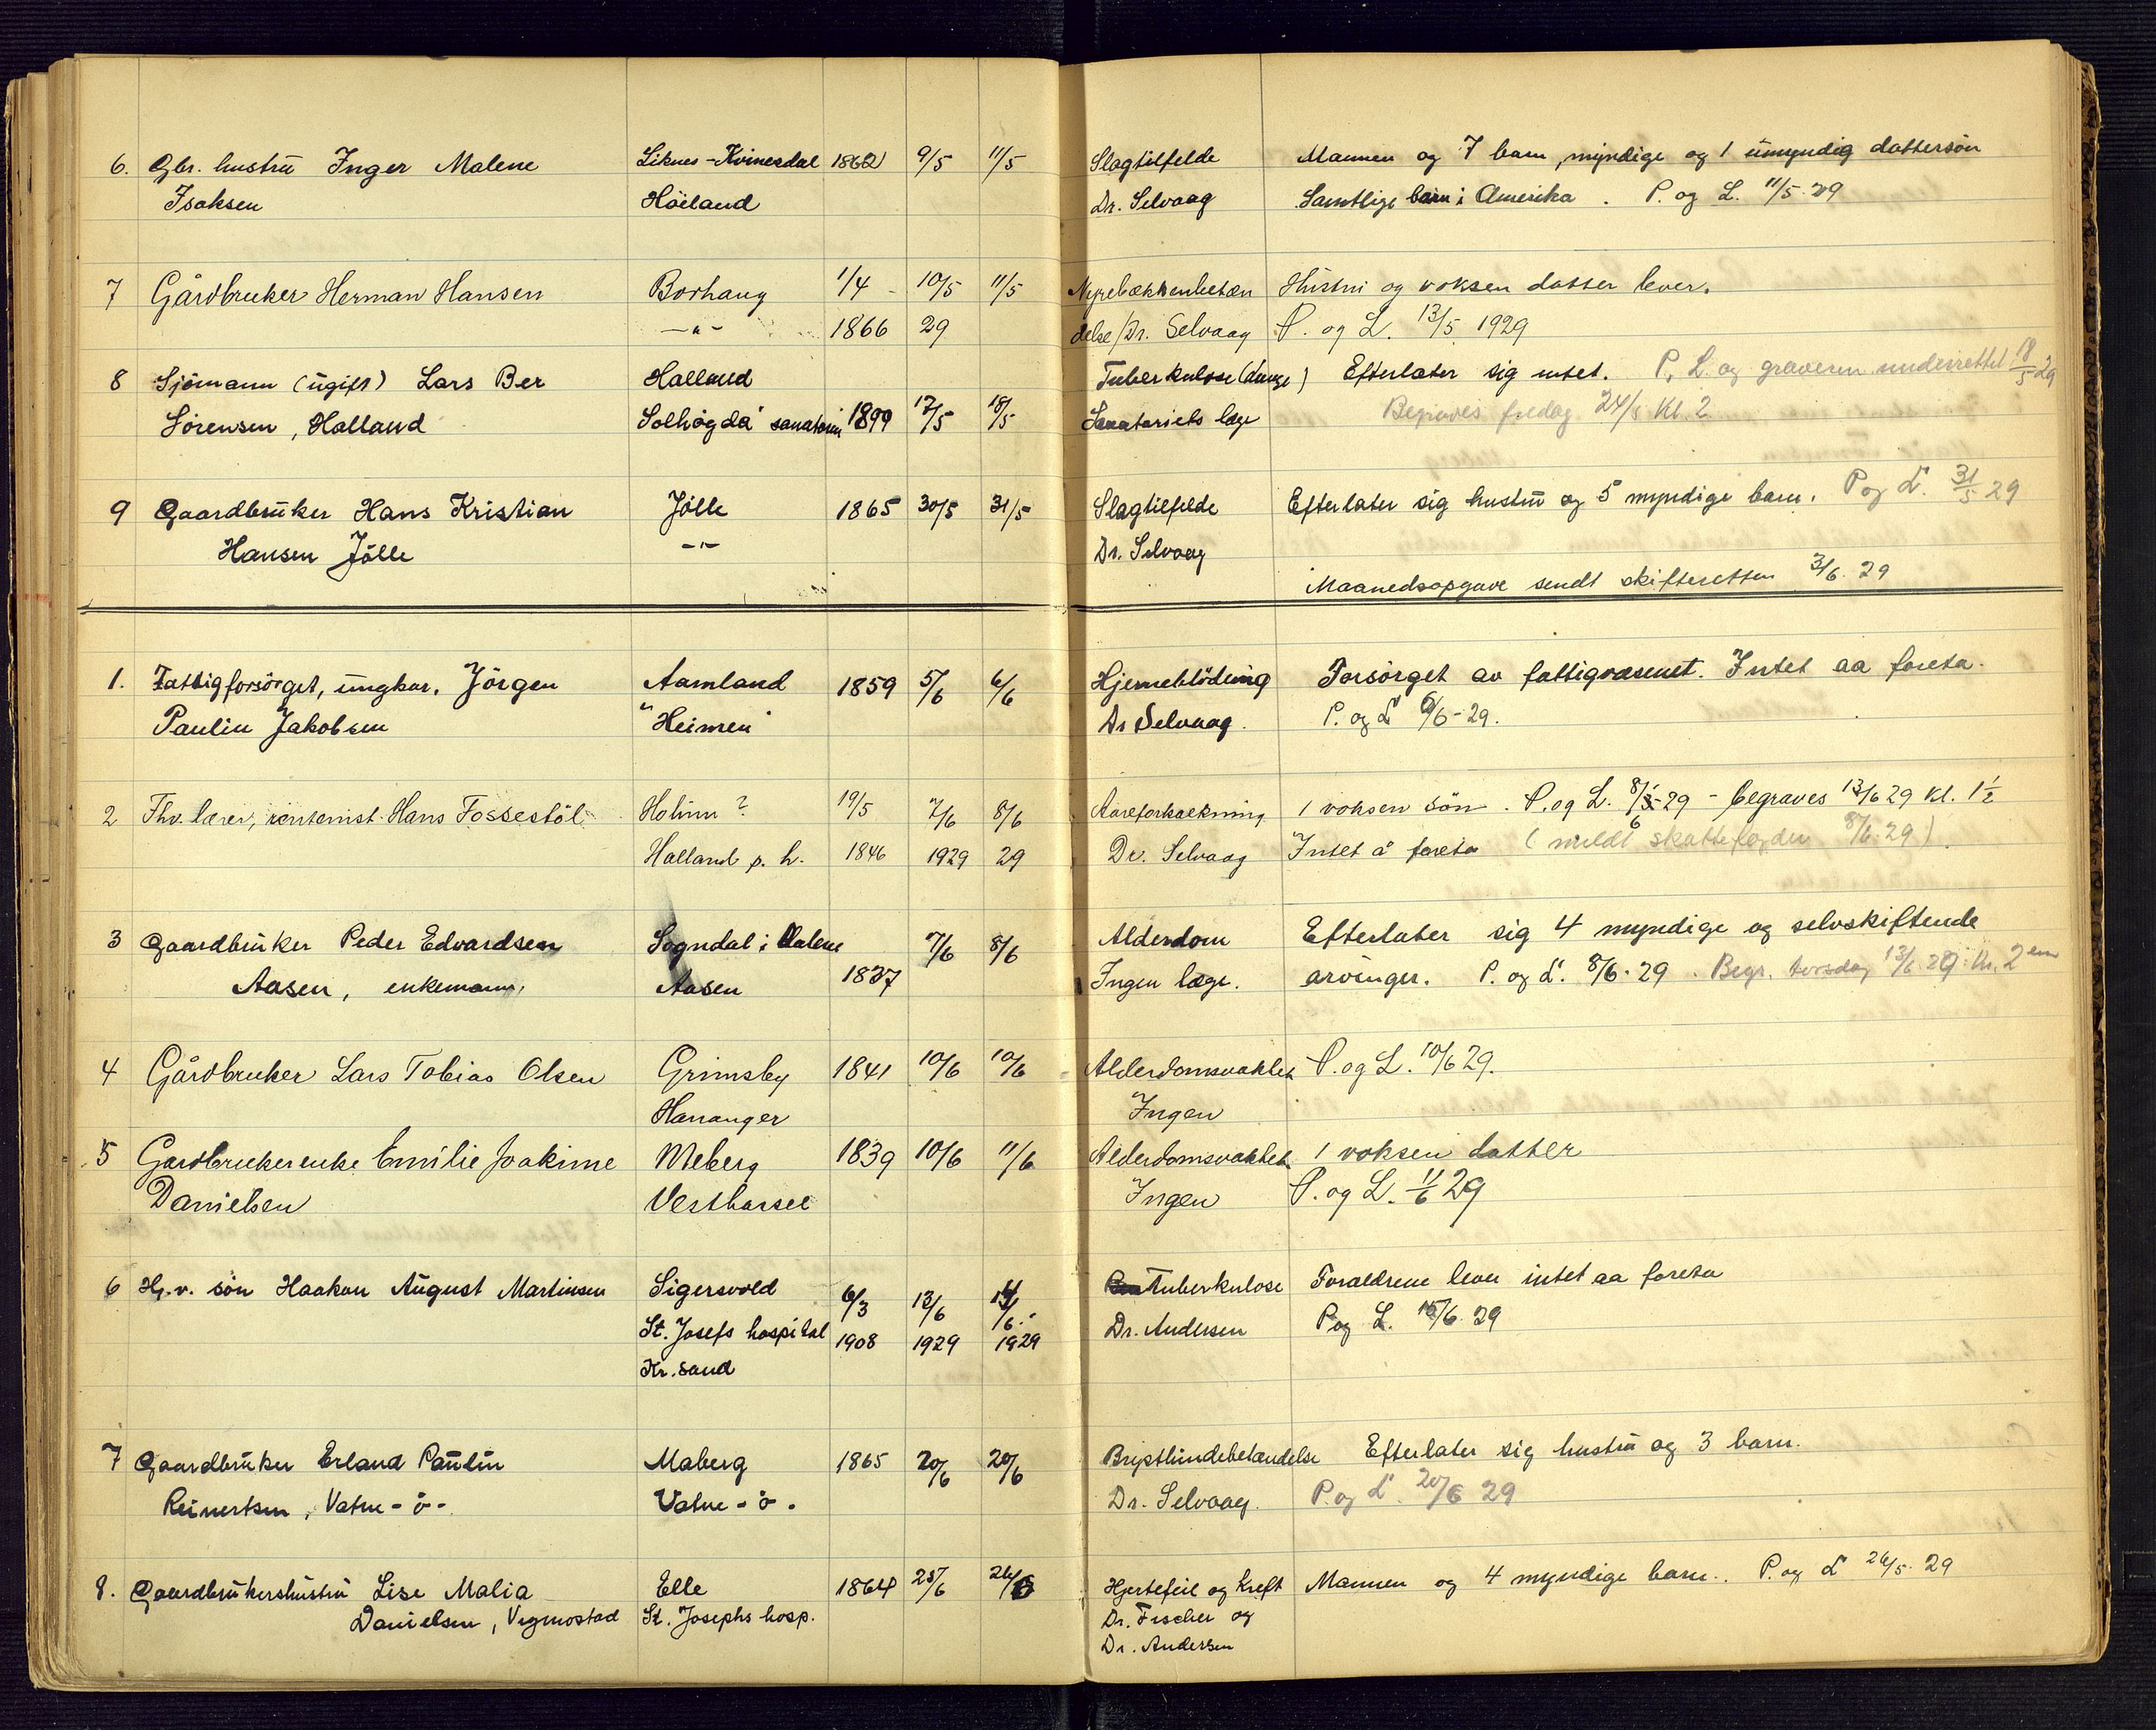 6. Gbr. hustru Inger Malene Liknes-Kvinesdal 1862 9/5 11/5 Slagtilfelde Mannen og 7 barn, myndige og 1 umyndig dattersön
Isaksen Höiland Dr. Selvaag Samtlige barn i Amerika. P. og L. 11/5-29
7 Gårdbruker Herman Hansen Borhaug 1/4 10/5 11/5 Nyrebækkenbetæn Hustru og voksen datter lever.
-"- 1866 29 delse/Dr. Selvaag P. og L. 13/5 1929
8 Sjömann (ugift) Lars Ber Halland Tuberkulose (lunge) Efterlater sig intet. P. L. og graveren underrettet 18/5 29
Sörensen, Halland Solhögda sanatorium 1899 17/5 18/5 Sanatoriets læge Begraves fredag 24/5 Kl. 2
9 Gaardbruker Hans Kristian Jölle 1865 30/5 31/5 Slagtilfelde Efterlater sig hustru og 5 myndige barn. P og L. 31/5 29
Hansen Jölle -"- Dr. Selvaag
Maanedsopgave sendt skifteretten 3/6. 29
1. Fattigforsörget, ungkar, Jörgen Aamland 1859 5/6 6/6 Hjerneblödning Forsörget av fattigvæsenet. Intet aa foreta.
Paulin Jakobsen "Heimen" Dr Selvaag. P. og L 6/6-29.
2 Fhv. lærer, rentenist Hans Fossestöl Holum? 19/5 7/6 8/6 Aareforkalkning 1 voksen sön. P. og L. 8/6-29 - begraves 13/6 29 kl. 1½
Halland p. h. 1846 1929 29 Dr. Selvaag Intet å foreta (meldt skattefogden 8/6-29).
3 Gaardbruker Peder Edvardsen Sogndal i Dalene 7/6 8/6 Alderdom Efterlater sig 4 myndige og selvskiftende
Aasen, enkemann, Aasen 1837 Ingen læge. arvinger. P. og L. 8/6-29. Begr. torsdag 13/6.29 kl. 2 em
4 Gårdbruker Lars Tobias Olsen Grimsby 1841 10/6 10/6 Alderdomsvakhet P. og L. 10/6 29.
Hananger Ingen
5 Gardbrukerenke Emilie Joakime Meberg 1839 10/6 11/6 Alderdomsvakhet 1 voksen datter
Danielsen Vestbarsee Ingen P. og L. 11/6 29
6 H.v. sön Haakon August Martinsen Sigersvold 6/3 13/6 14/6 Tuberkulose Foraeldrene lever intet aa foreta
St. Josefs hospital 1908 1929 1929 Dr. Andersen P og L. 15/6 29
Kr.sand
7 Gaardbruker Erland Paulin Maberg 1865 20/6 20/6 Brysthindebetændelse Efterlater sig hustru og 3 barn.
Reinertsen, Vatne-ö- Vatne-ö. Dr. Selvaag. P. og L 20/6 29
8. Gaardbrukershustru Lise Malia Elle 1864 25/6 26/6 Hjertefeil og Kreft Mannen og 4 myndige barn. P. og L 26/5. 29
Danielsen, Vigmostad St. Josephs hosp. Dr. Fischer og
Dr. Andersen